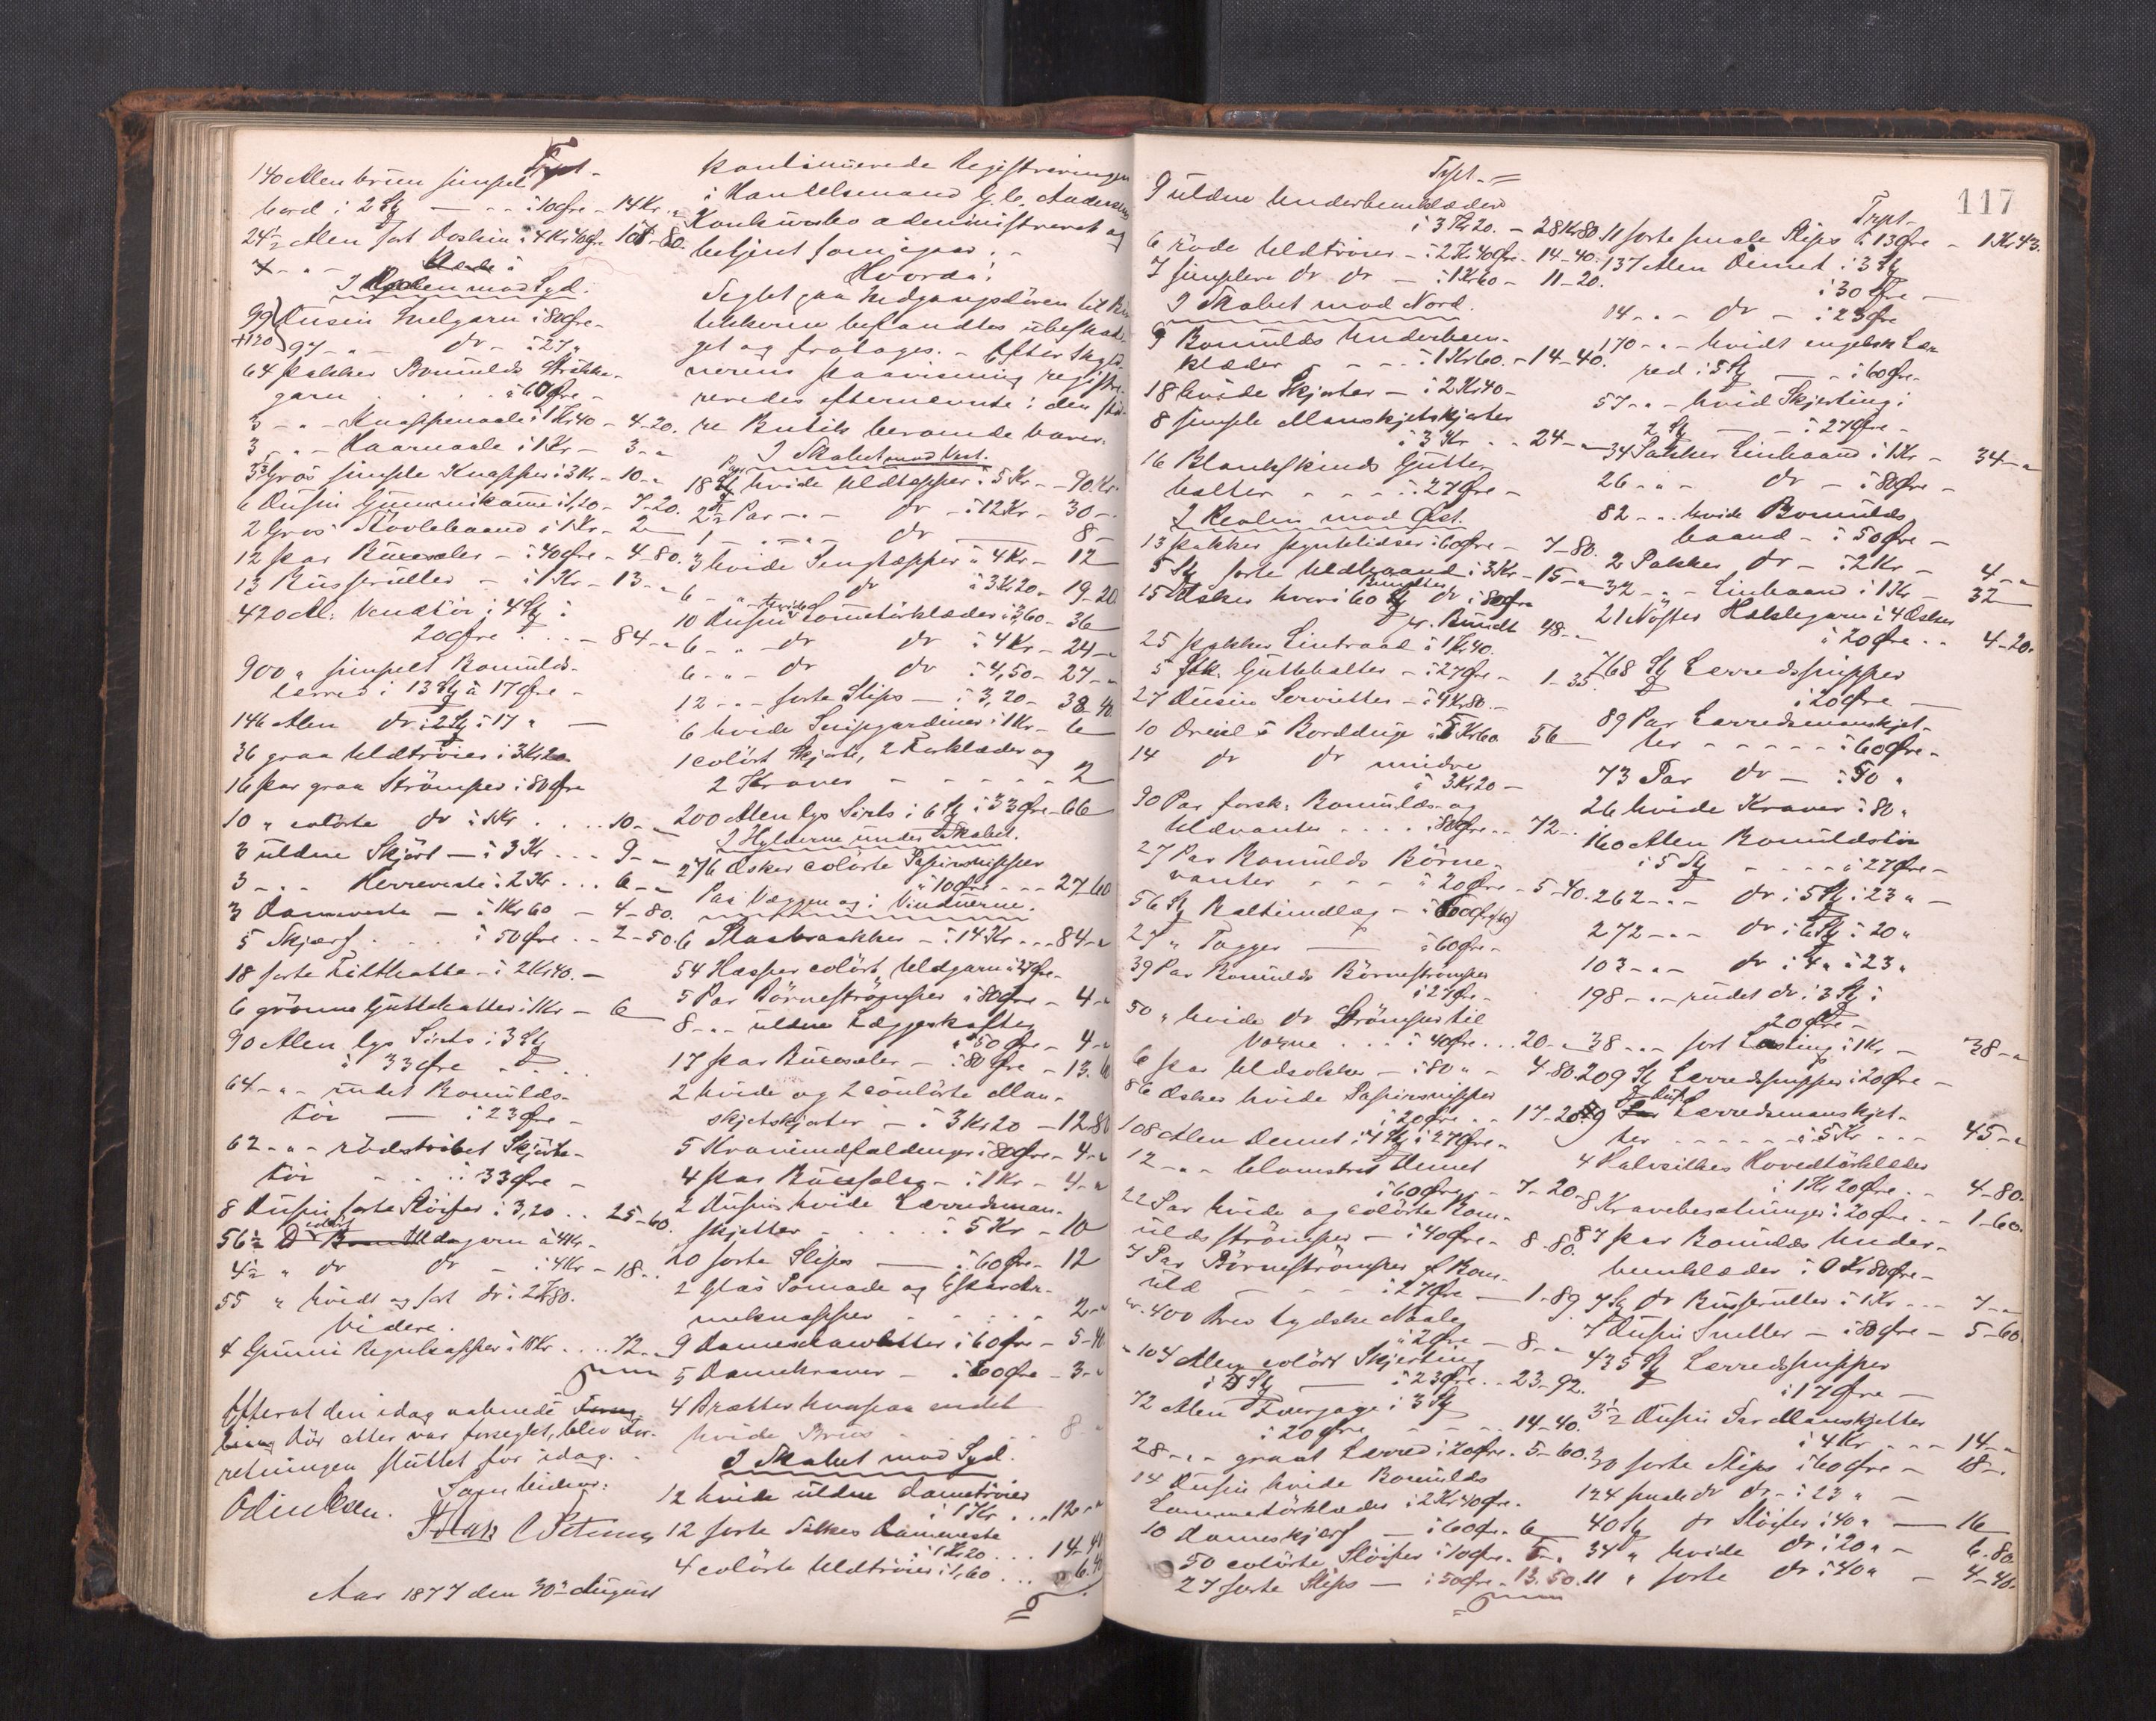 Trpt.
140 Alen brun simpel
bord i 2 St — à 10 Øre - 14 Kr. „
24½ Alen sort Doskin à 4 Kr 40 Øre 107-80.
I Reolen mod Syd.
99 Dusin Snelgarn à 80 Øre -
+120 97 - „ - dr - à 27 „
64 Pakker Bomulds Strikke-
garn . . . . à 60 Øre -
3 - „ - Knappenaale à 1 Kr 40 - 4-20.
3 - „ - Haarnaale à 1 Kr - 3- „
3⅓ Gros simple Knapper à 3 Kr - 10- „
6 Dusin Gummikamme à 1,20 - 7-20.
2 Gros Støvlebaand à 1 Kr - 2
12 par Buxeseler - à 40 Øre - 4-80.
13 Busseruller - à 1 Kr - 13- „
420 Al: Vendtøi i 4 St à
20 Øre . . . - 84- „
900 „ simpelt Bomulds-
lærred i 13 St à 17 Øre -
146 Alen dr i 2 St à 17 „ —
36 graa Uldtrøier à 3 Kr 20
16 par graa Strømper à 80 Øre
10 „ colørte dr à 1 Kr . . . . 10- „
3 uldne Skjørt — à 3 Kr . . . 9- „
3 - „ - Herreveste à 2 Kr . . . 6- „
3 Dameveste — à 1 Kr 60 - 4-80.
5 Skjærf . . . . à 50 Øre . . 2-50.
18 sorte Filthatte - à 2 Kr 40. -
6 grønne Guttehatte à 1 Kr - 6
90 Alen lys Sirts i 3 St
à 33 Øre - . .
64 - „ - rudet Bomulds-
tøi — à 23 Øre -
62 - „ - rødstribet Skjørte-
tøi - . . à 33 Øre -
8 Dusin sorte Sløifer à 3,20 . . 25-60.
56½ colørt Uldgarn à 4 Kr -
4½ „ dr dr - à 4 Kr - 18. .
55 „ hvidt og sort dr à 2 Kr 80.
Videre.
4 Gummi Regnkapper à 18 Kr . . . . 72- „
Efterat den idag aabnede
Dør atter var forseglet, blev For-
retningen sluttet for idag. -
Som Vidner:
Odin Olsen.
Aar 1877 den 30te August
kontinuerede Registreringen
i Handelsmand G. C. Andersens
Konkursbo administreret og
betjent som igaar. -
Hvorda:
Seglet paa Indgangsdøren til Bu-
tikkerne befandtes ubeskadi-
get og fratages. - Efter Skyld-
nerens paavisning registre-
redes efternevnte i den stø-
re Butik beroende Varer.
I Skabet mod Vest.
18 Par hvide Uldtæpper à 5 Kr - 90. Kr.
2½ Par - „ - dr - à 12 Kr - 30 -
1 - „ - „ - dr — 8 -
3 hvide Sengtæpper à 4 Kr - 12
6 - „ - dr à 3 Kr 20 - 19-20
10 Dusin hvide Lommetørklæder à 3,60 - 36
6 - „ - dr dr à 4 Kr - 24- „
6 - „ - dr dr à 4,50 - 27- „
12 - „ - sorte Slips — à 3,20 - 38-40
6 hvide Snipgardiner à 1 Kr - 6
1 colørt Skjorte, 2 Forklæder og
2 Kraver - - - - - 2
200 Alen lys Sirts i 6 St à 33 Øre - 66
I Hylderne under Skabet.
276 Æsker colørte Papirsnipper
à 10 Øre - - - 27-60
Paa Væggen og i Vinduerne.
6 Stasbrakker - à 14 Kr . . . 84- „
54 Hasper colørt Uldgarn à 27 Øre -
5 Par Børnestrømper à 80 Øre - 4- „
8 - „ - uldne Læggeskafter
à 50 Øre - 4- „
17 par Buxeseler - à 80 Øre - 13.60
2 hvide og 2 coulørte Man-
skjetskjorter - à 3 Kr 20 - 12-80
5 Kraveindfaldninger à 80 Øre - 4- „
4 par - à 1 Kr - 4- „
2 Dusin hvide Lærredsman-
skjetter - . . . . à 5 Kr - 10
20 sorte Slips — à 60 Øre - 12
2 Glas Pomade og
meknapper - . . . . 2- „
9 à 60 Øre - 5-40
5 Damekraver - à 60 Øre - 3- „
4 Brætter hvorpaa endel
hvide Brus . . . 8. „
I Skabet mod Syd.
12 hvide uldne Dametrøier
à 1 Kr . . . 12- „
12 sorte Silkes Dameveste
à 1 Kr 20 . . . 14-40
4 colørte Uldtrøier à 1,60 . . . 6.40
117
Trpt. =
9 uldne Underbenklæder
à 3 Kr 20. - 28 Kr 80.
6 røde Uldtrøier - à 2 Kr 40 Øre - 14-40.
7 simplere dr dr - à 1 Kr 60 - 11-20.
I Skabet mod Nord.
9 Bomulds Underben-
klæder - - - à 1 Kr 60. - 14-40.
18 hvide Skjorter - à 2 Kr 40 -
8 simple Manskjetskjorter
à 3 Kr . . . 24- „
16 Blankskinds Gutte-
belter - - - à 27 Øre -
I Reolen mod Øst.
13 pakker pyntelidser à 60 Øre - 7-80.
5 St sorte Uldbaand à 3 Kr - 15- „
15 Æsker hver i 60 Bundter dr à 80 Øre
pr. Bundt 48- „
25 pakker Lintraad à 1 Kr 40.
5 Stk. Guttebælter - à 27 Øre - 1-35.
27 Dusin Servietter - à 4 Kr 80. -
10 Dreiel s Bordduge à 5 Kr 60 56
14 dr dr mindre
à 3 Kr 20 —
90 Par forsk: Bomulds- og
Uldvanter . . . . à 80 Øre . . 72- „
27 Par Bomulds Børne-
vanter - - - à 20 Øre - 5-40.
56 St Bælteindlæg - à
27 „ Tagger — à 60 Øre -
39 Par Bomulds Børnestrømper
à 27 Øre -
50 „ hvide dr Strømper til
Voxne . . . à 40 Øre . . . 20- „
6 par Uldsokker - à 80 „ - 4-80.
86 Æsker hvide Papirsnipper
à 20 Øre . . 17-20.
108 Alen Demet i 4 St à 27 Øre -
12 - „ - blomstret Demet
à 60 Øre . - 7-20.
22 Par hvide og colørte Bom-
uldsstrømper - à 40 Øre - 8.80.
7 Par Børnestrømper f Bom-
uld - - - à 27 Øre — 1.89.
400 Brev tydske Naale
à 2 Øre - 8- „
104 Alen colørt Skjerting
i 3 St — à 23 Øre . . 23-92.
72 Alen Foergaze i 3 St
à 20 Øre - - - - 14-40.
28 - „ - graat Lærred à 20 Øre . 5-60.
14 Dusin hvide Bomulds
Lommetørklæder à 2 Kr 40 Øre .
10 Dameskjærf — à 60 Øre . 6
50 colørte Sløifer à 10 Øre . 5- „
27 sorte Slips — à 50 Øre . 13.50.
Trpt -
11 sorte smale Slips à 13 Øre - 1 Kr 43.
137 Alen Demet i 3 St
à 30 Øre -
14 - „ - dr - à 23 Øre
170 - „ - hvidt engelsk Lær-
red i 5 St — à 60 Øre -
57 - „ - hvid Skjerting i
2 St — à 27 Øre -
34 Pakker Linbaand à 1 Kr - 34- „
26 - „ - dr - à 80 Øre -
82 - „ hvide Bomulds
baand - à 50 Øre -
2 Pakker dr - à 2 Kr - 4- „
32 - „ - Linbaand à 1 Kr - 32
21 Nøster Hæklegarn i 4 Æsker
à 20 Øre - . 4-20.
768 St Lærredssnipper
à 20 Øre —
89 Par Lærredsmanskjet-
ter - - - - - à 60 Øre -
73 Par dr — à 50 „
26 hvide Kraver à 80 „
160 Alen Bomuldstøi
i 5 St - - - - à 27 Øre -
262 - „ - dr i 5 St à 23 „ -
272 - „ - dr i 6 St à 20 „
103 - „ - dr i 4 „ à 23 „
198 - „ - rudet dr i 3 St à
20 Øre -
38 - „ - sort Lasting à 1 Kr - 38- „
209 St Lærredssnipper à 20 Øre -
9 Dusin Lærredsmanskjet-
ter - - - - - à 5 Kr - - - 45- „
4 Halvsilkes Hovedtørklæder
à 1 Kr 20 Øre . - 4-80.
8 Kravebesætninger à 20 Øre . . 1-60.
87 par Bomulds Under-
benklæder à 0 Kr 80 Øre -
7 St dr Busseruller à 1 Kr - - - 7- „
7 Dusin Sneller - à 80 Øre - 5-60.
435 St Lærredssnipper
à 17 Øre —
3½ Dusin Par Manskjetter
à 4 Kr - - - 14- „
30 sorte Slips à 60 Øre - 18- „
124 smale dr dr - à 23 „ -
40 St dr Sløifer à 40 „ — 16
34 „ hvide dr à 20 „ - 6.80
11 „ sorte dr à 40 „ - 4-40.